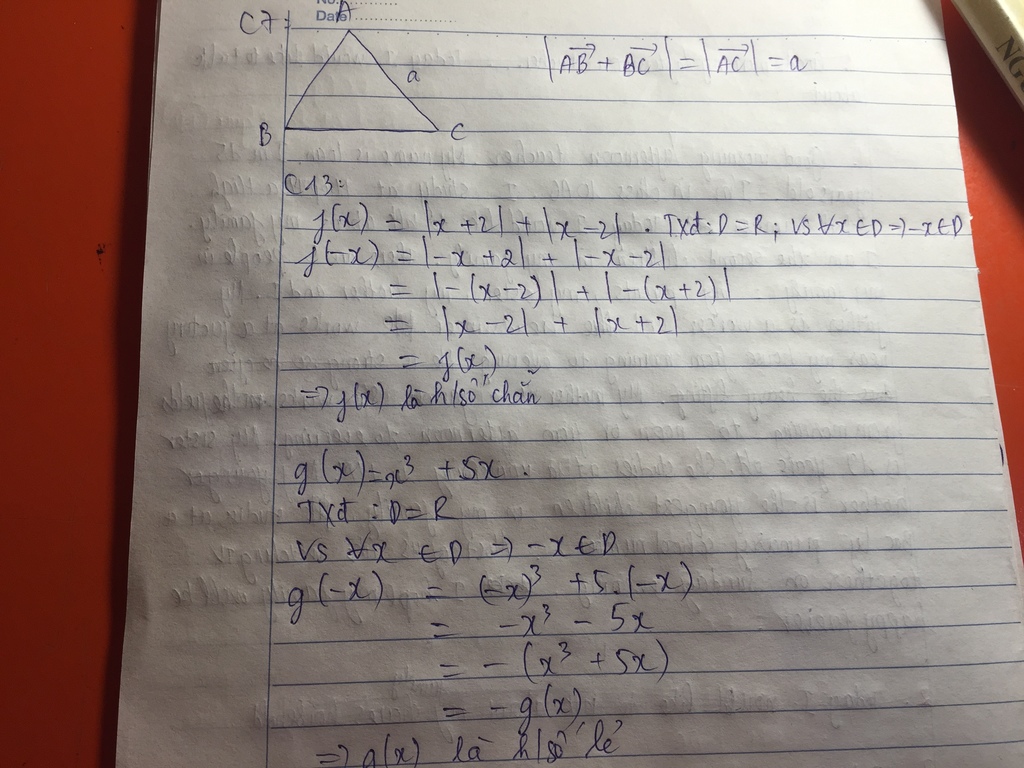 No.
Date
C7:
A
a
B
C
|AB→ + BC→| = |AC→| = a
C13:
f(x) = |x+2| + |x-2| . TXĐ: D = R ; vs ∀x ∈ D => -x ∈ D
f(-x) = |-x+2| + |-x-2|
= |-(x-2)| + |-(x+2)|
= |x-2| + |x+2|
= f(x)
=> f(x) là h/số chẵn
g(x) = x³ + 5x .
TXĐ : D = R
vs ∀x ∈ D => -x ∈ D
g(-x) = (-x)³ + 5.(-x)
= -x³ - 5x
= -(x³ + 5x)
= -g(x)
=> g(x) là h/số lẻ